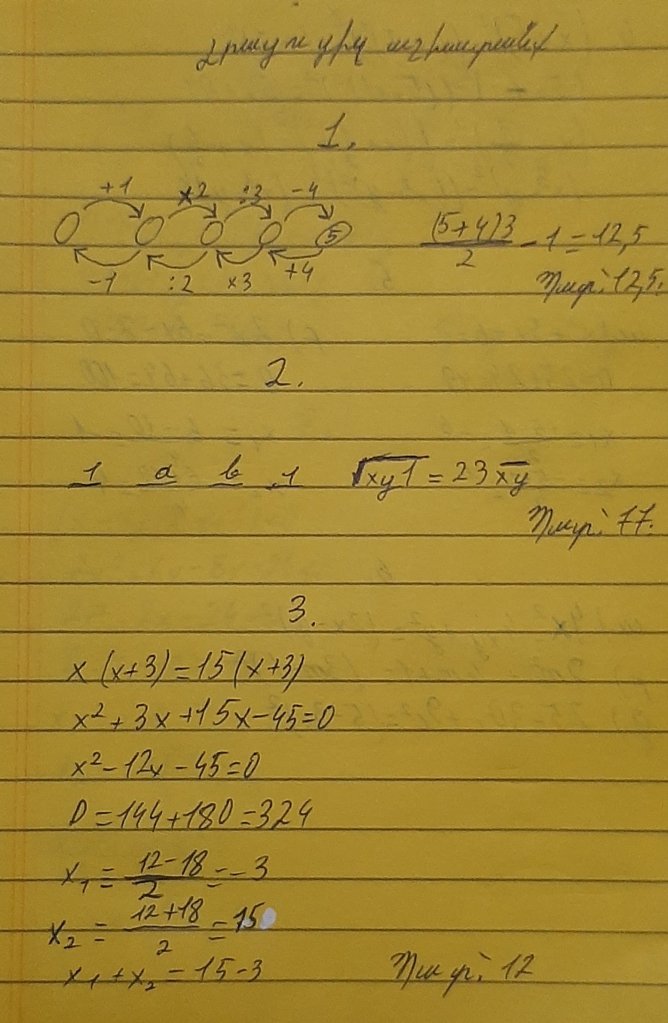 1.
+1 ×2 :3 -4
5
-1 :2 ×3 +4
(5+4)3/2 - 1 = 12,5
Պատ՝ 12,5.
2.
1 a b 1 √xy1 = 23xy
Պատ՝ 77.
3.
x(x+3)=15(x+3)
x²+3x+15x-45=0
x²-12x-45=0
D=144+180=324
x₁ = (12-18)/2 = -3
x₂ = (12+18)/2 = 15
x₁+x₂ = 15-3
Պատ՝ 12